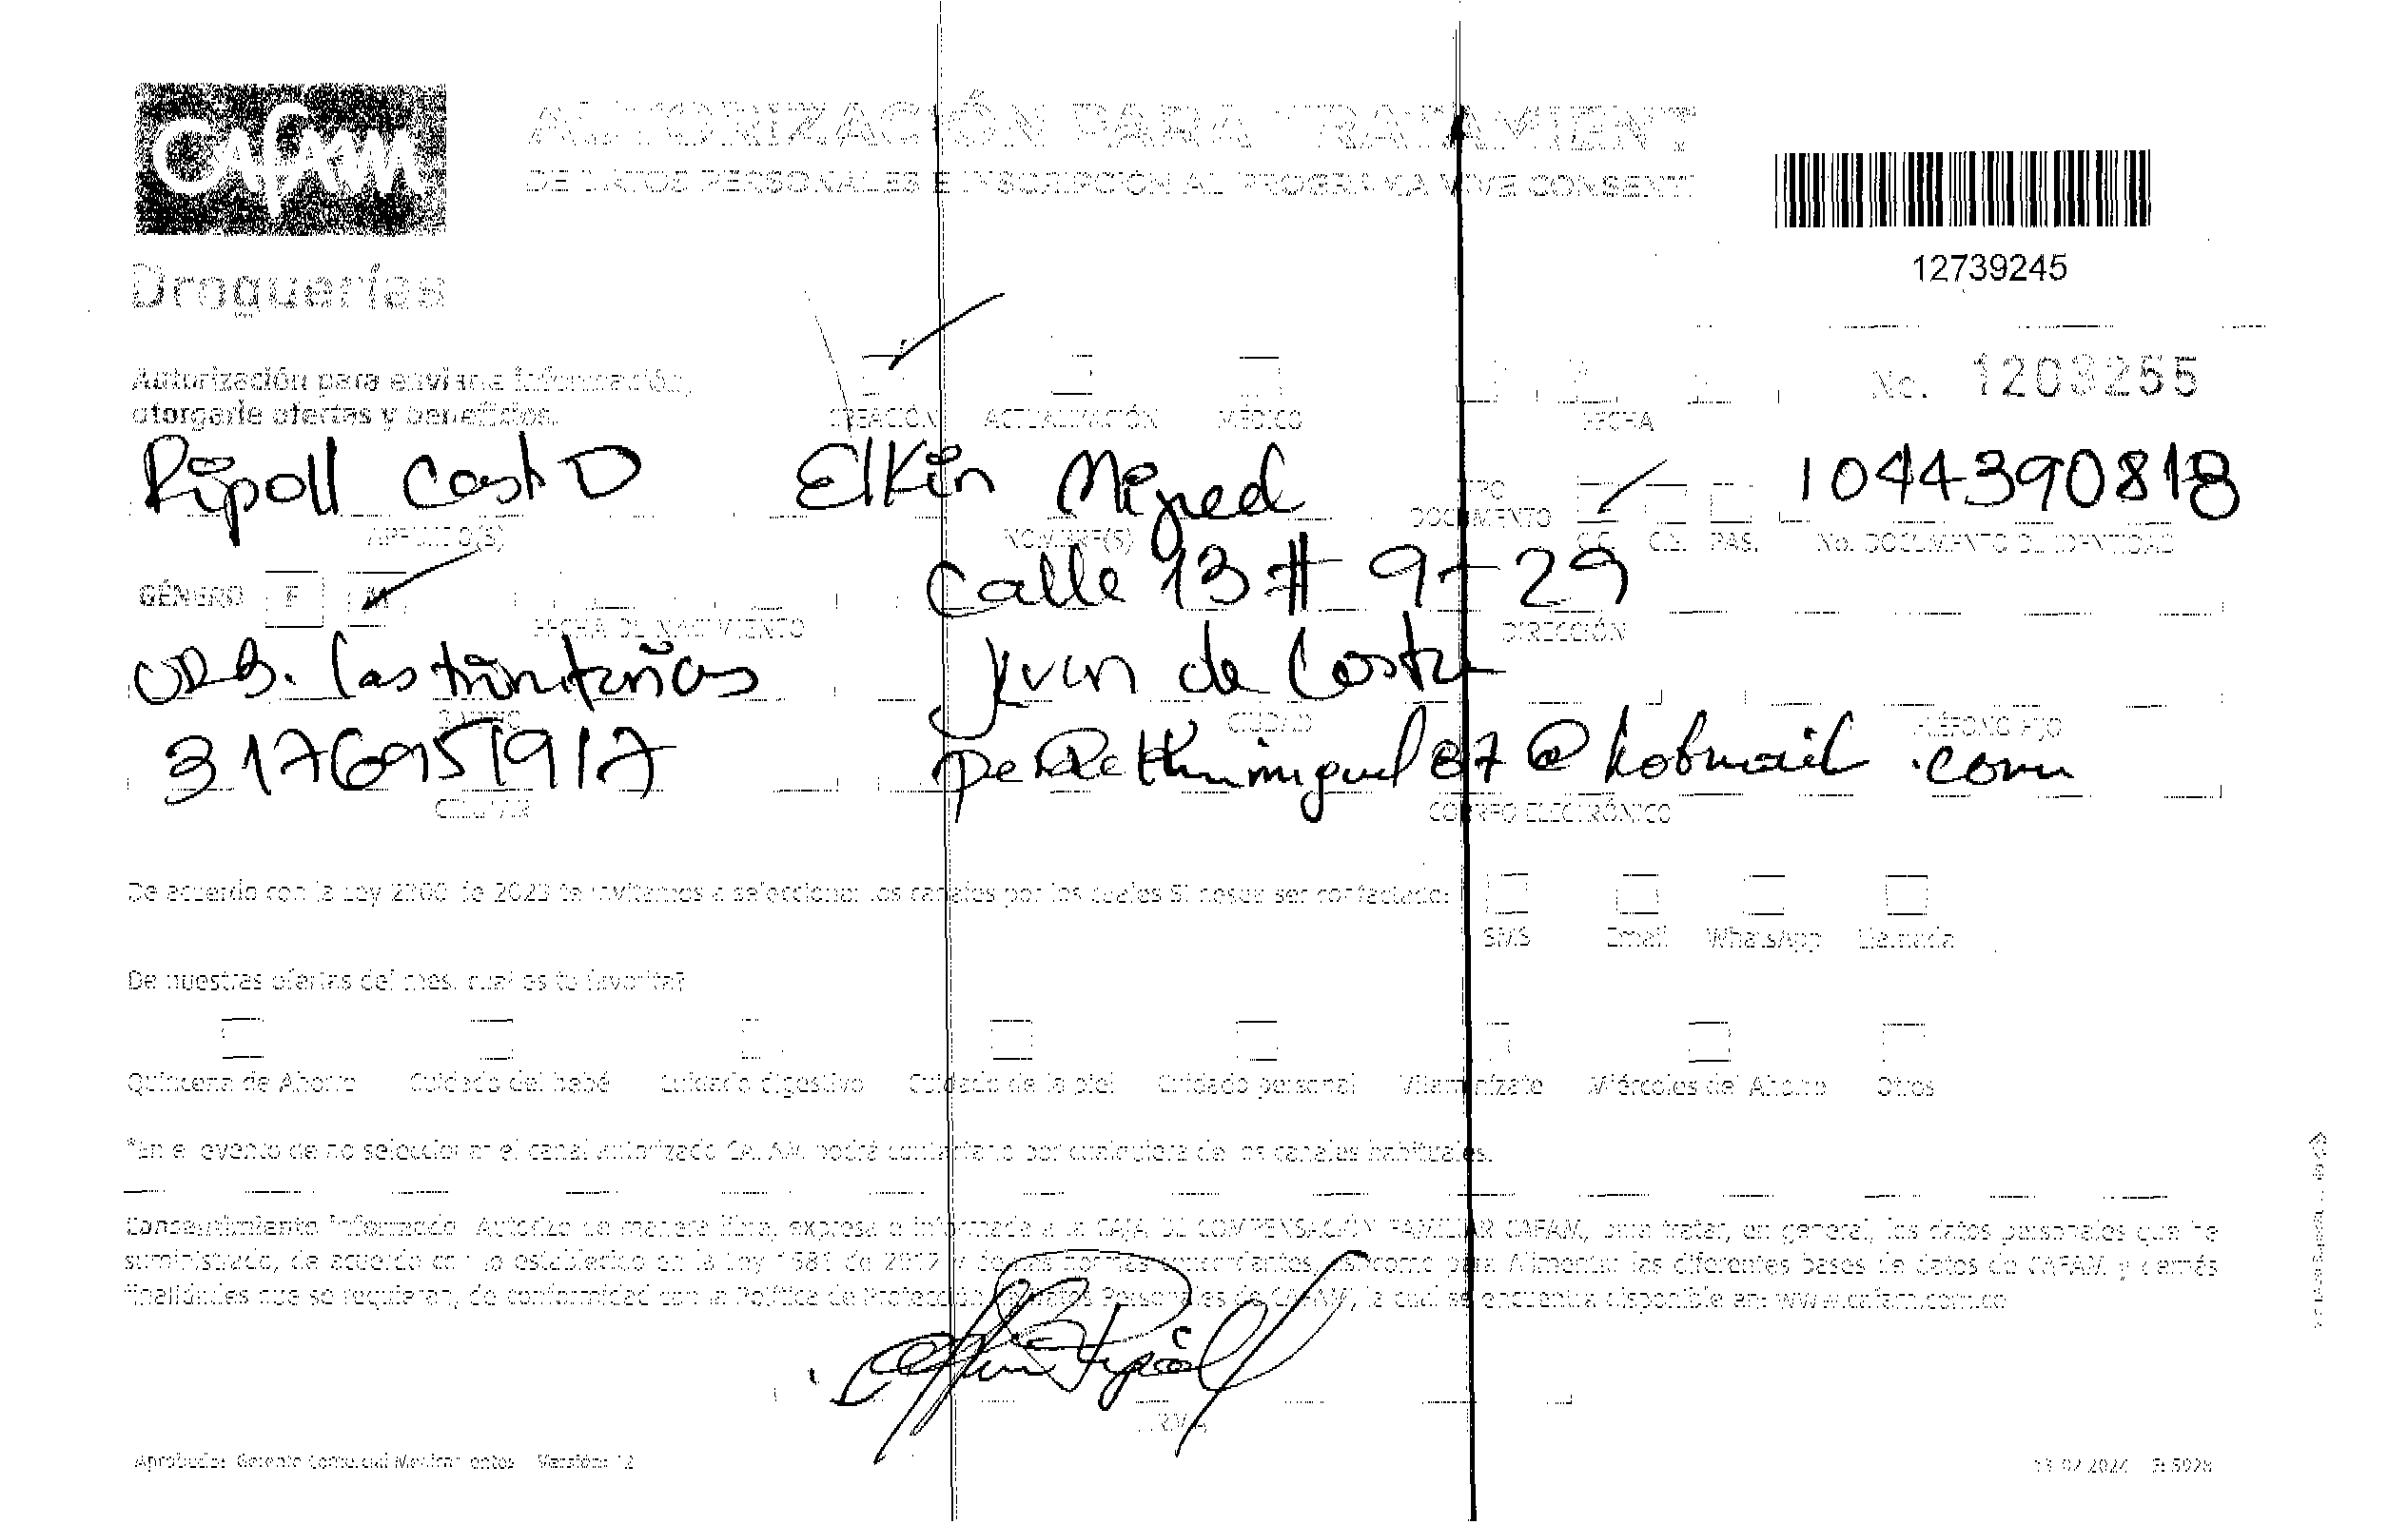 Cafam
AUTORIZACIÓN PARA TRATAMIENT
DE DATOS PERSONALES E INSCRIPCIÓN AL PROGRAMA VIVE CONSENTI
12739245
Droguerías
Autorización para enviarle información,
otorgarle ofertas y beneficios.
CREACIÓN ACTUALIZACIÓN MÉDICO FECHA No. 1203255
Ripoll Elkin Miguel 1044390818
APELLIDO(S) NOMBRE(S) TIPO DOCUMENTO C.C. C.E. PAS. No. DOCUMENTO DE IDENTIDAD
GÉNERO F M Calle 13 # 9-29
FECHA DE NACIMIENTO DIRECCIÓN
URB. Las Juan de Acosta
BARRIO CIUDAD TELÉFONO FIJO
3176951917 @hotmail.com
CELULAR CORREO ELECTRÓNICO
De acuerdo con la Ley 2300 de 2023 te invitamos a seleccionar los canales por los cuales SI desea ser contactado:
SMS Email WhatsApp Llamada
De nuestras ofertas del mes, cual es tu favorita?
Quincena de Ahorro Cuidado del bebé Cuidado digestivo Cuidado de la piel Cuidado personal Vitamínízate Miércoles del Ahorro Otros
*En el evento de no seleccionar el canal autorizado CAFAM podrá contactarlo por cualquiera de los canales habituales.
Consentimiento Informado: Autorizo de manera libre, expresa e informada a la CAJA DE COMPENSACIÓN FAMILIAR CAFAM, para tratar, en general, los datos personales que he
suministrado, de acuerdo con lo establecido en la Ley 1581 de 2012 y demás normas concordantes, así como para Alimentar las diferentes bases de datos de CAFAM y demás
finalidades que se requieran, de conformidad con la Política de Protección de Datos Personales de CAFAM, la cual se encuentra disponible en: www.cafam.com.co
Ripoll
FIRMA
Aprobado: Gerente Comercial Medicamentos Versión: 12
13-02-2024